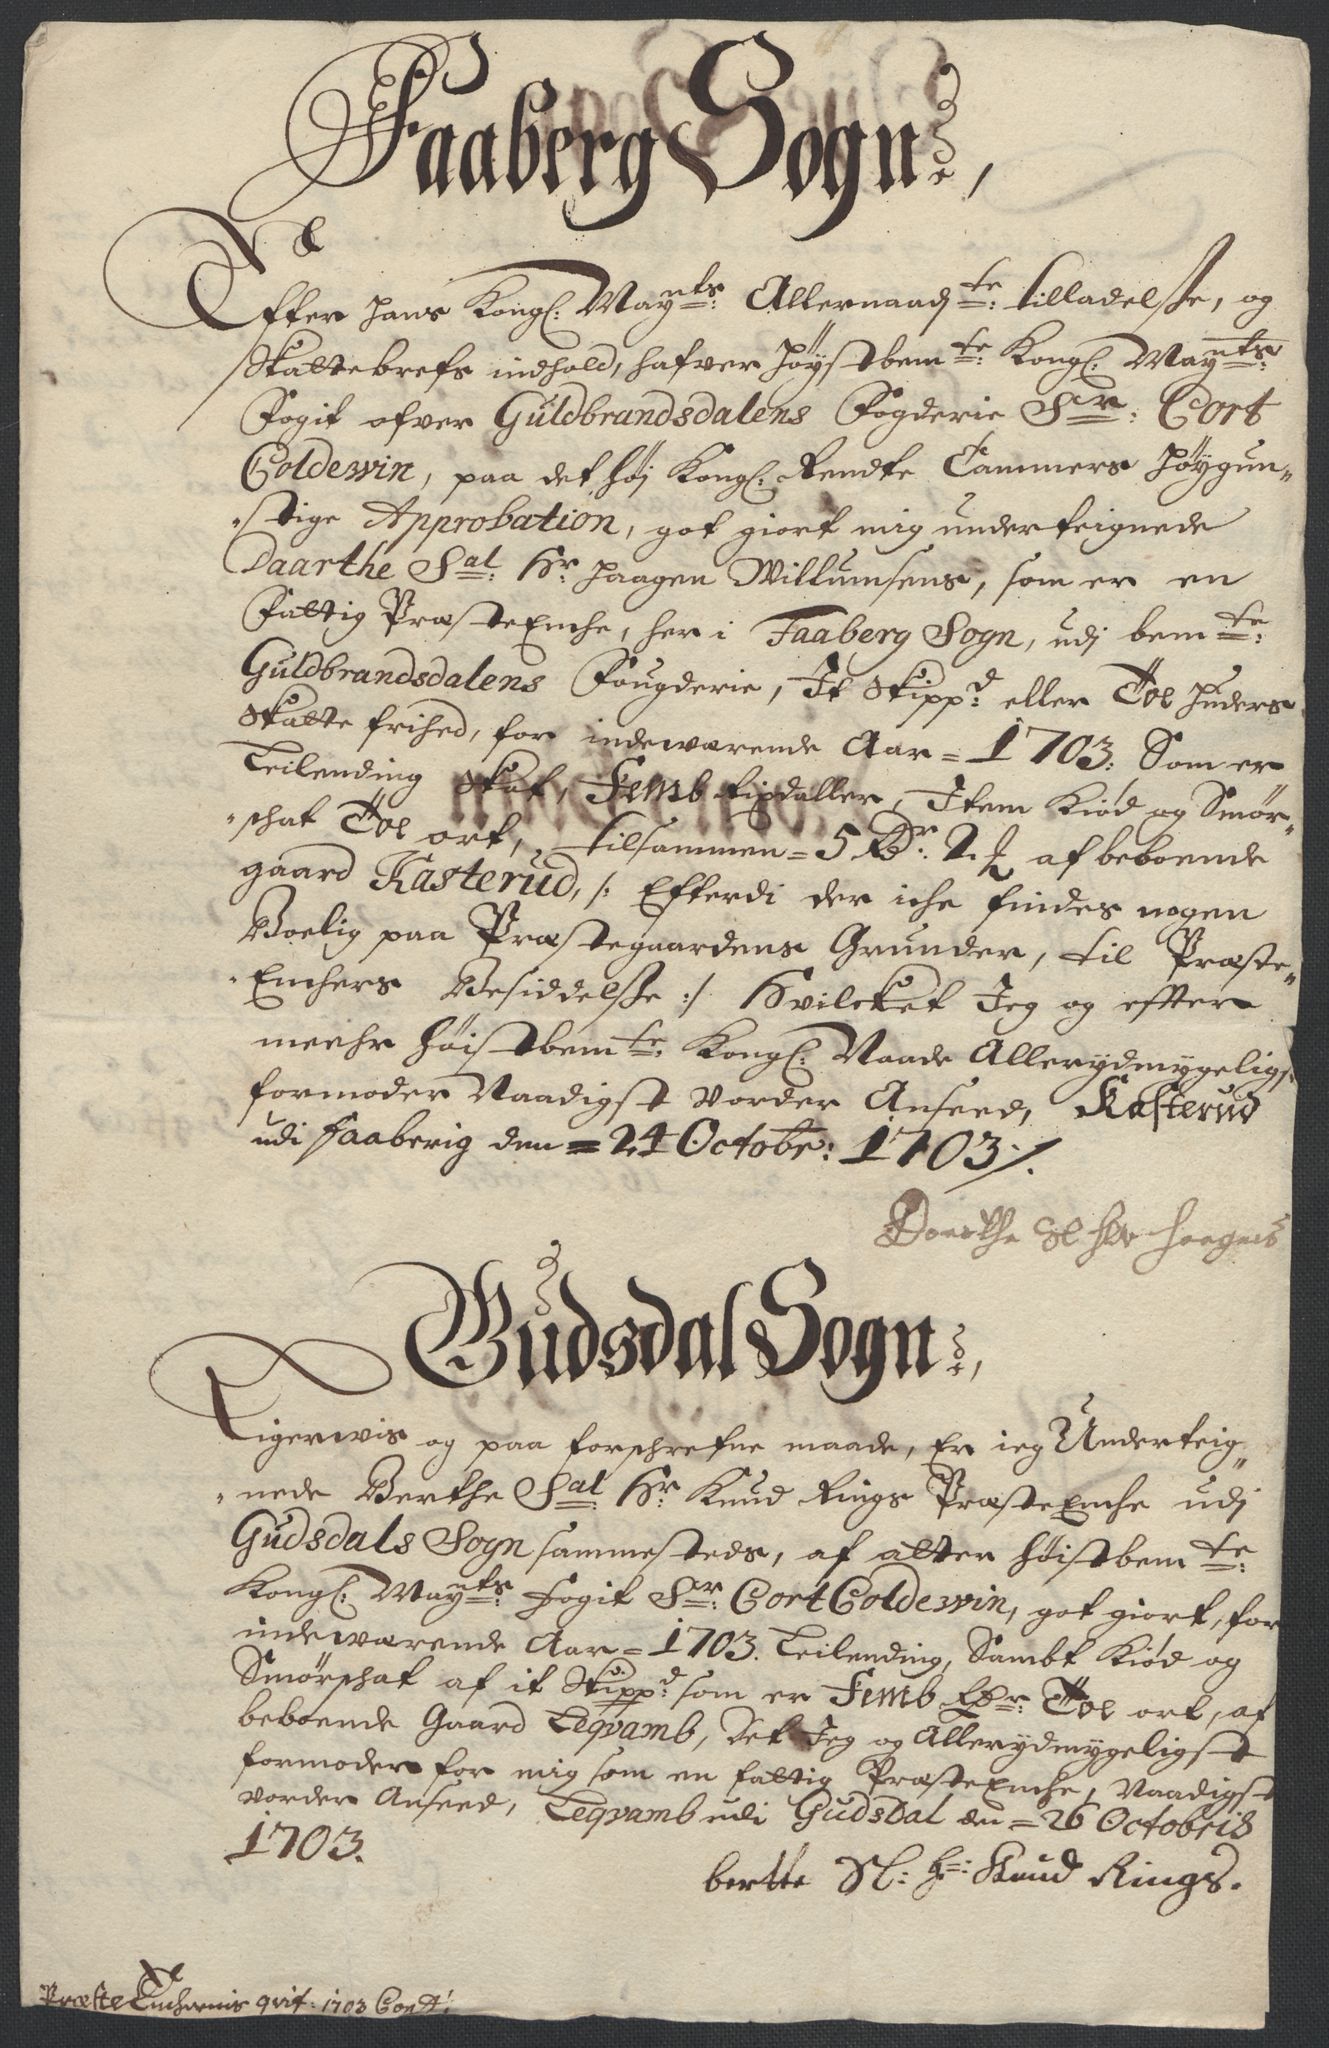 Faaberg Sogn,
Efter hans Kongl: Mayts: Allernaadte: tilladelse, og
Skattebrefs indhold, hafver høystbemte: Kongl: Mayts:
Fogit ofver Guldbrandsdalens Fogderie Sr: Cort
Coldewin, paa det høj Kongl: Rendte Cammers høygun„
„stige Approbation, got giort mig underteignede
Daarthe Sal: Hr Haagen Willumsens, som er en
Fattig PræsteEnche, her i Faaberg Sogn, udj bemte:
Guldbrandsdalens Fougderie, It Skippd: eller Tol huders
Skatte frihed, for indewærende Aar = 1703: Som er
Leilending Skat, Femb rixdaller, Item Kiød og Smør„
„schat Tol ort, tilsammen = 5 Rdr: 2 ₰ af beboende
gaard Kasterud, /: Efterdi der iche findes nogen
Boelig paa Præstegaardens Grunder, til Præste„
„Enchers Besiddelse :/ Hvilcket Jeg og efter
meehr høistbemte: Kongl: Naade Allerydmygeligst
formoder Naadigst vorder Anseed, Kasterud
udi Faaberig den = 24 Octobr: 1703 /.
Doerthe Sl Hr Haagens
Gudsdal Sogn,
Ligerwis og paa forschrefne maade, Er ieg Underteig„
„nede Berthe Sal: Hr Knud Rings PræsteEnche udj
Gudsdals Sogn sammesteds, af alter høistbemte:
Kongl: Mayts: Fogit Sr: Cort Coldewin, got giort, for
indewærende Aar = 1703. Leilending, Sambt Kiød og
Smørschat af it Skippd: som er Femb Rdr: Tol ort, af
beboende Gaard Leqvamb, Det Jeg og Allerydmygeligst
formoder for mig som en fattig PræsteEnche, Naadigst
vorder Anseed, Leqvamb udi Gudsdal den = 26 Octobris
1703.
bertte Sl: Hr: Knud Rings.
PræsteEnchernis qvit: 1703 Cont: